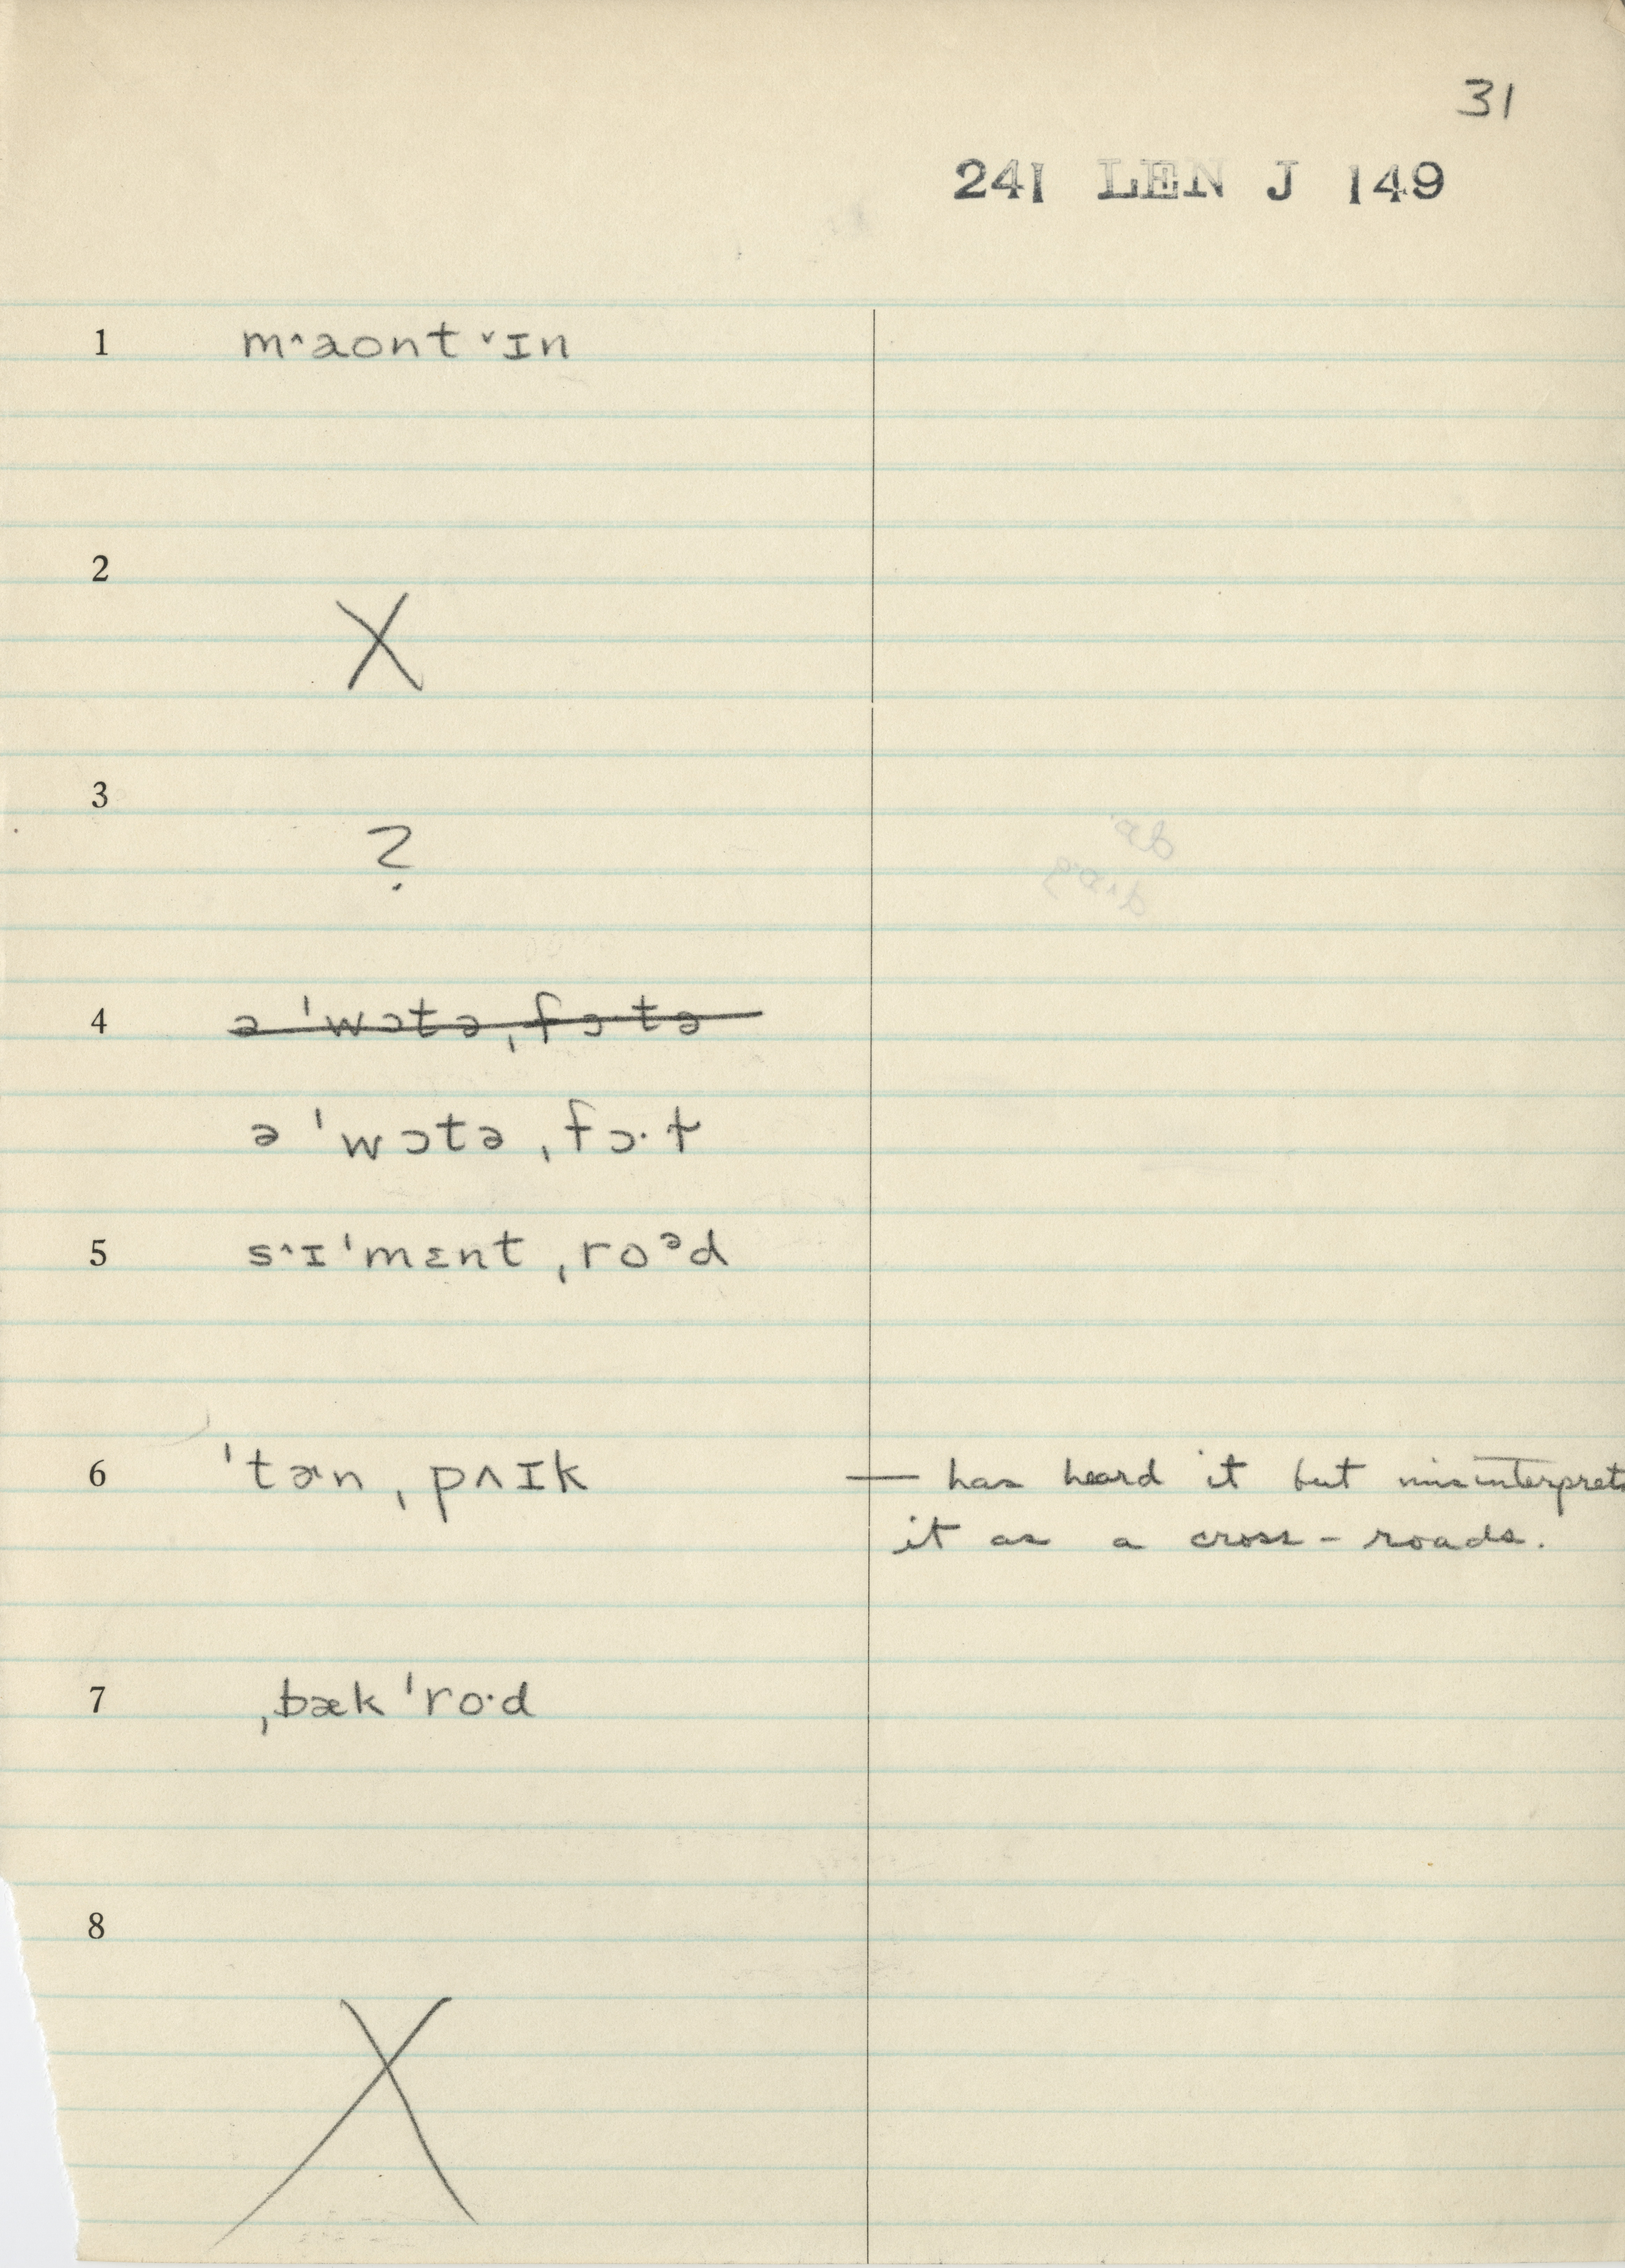 31
241 LEN J 149
1 m˄aont ˅ɪn
2
X
3
?
4 ə ˈwɔtə ˌfɔ·tə
ə ˈwɔtə ˌfɔ·t
5 s˄ɪˈmɛnt ˌroᵊd
6 ˈtɚn ˌpʌɪk — has heard it but misinterprets
it as a cross-roads.
7 ˌbæk ˈro·d
8
X